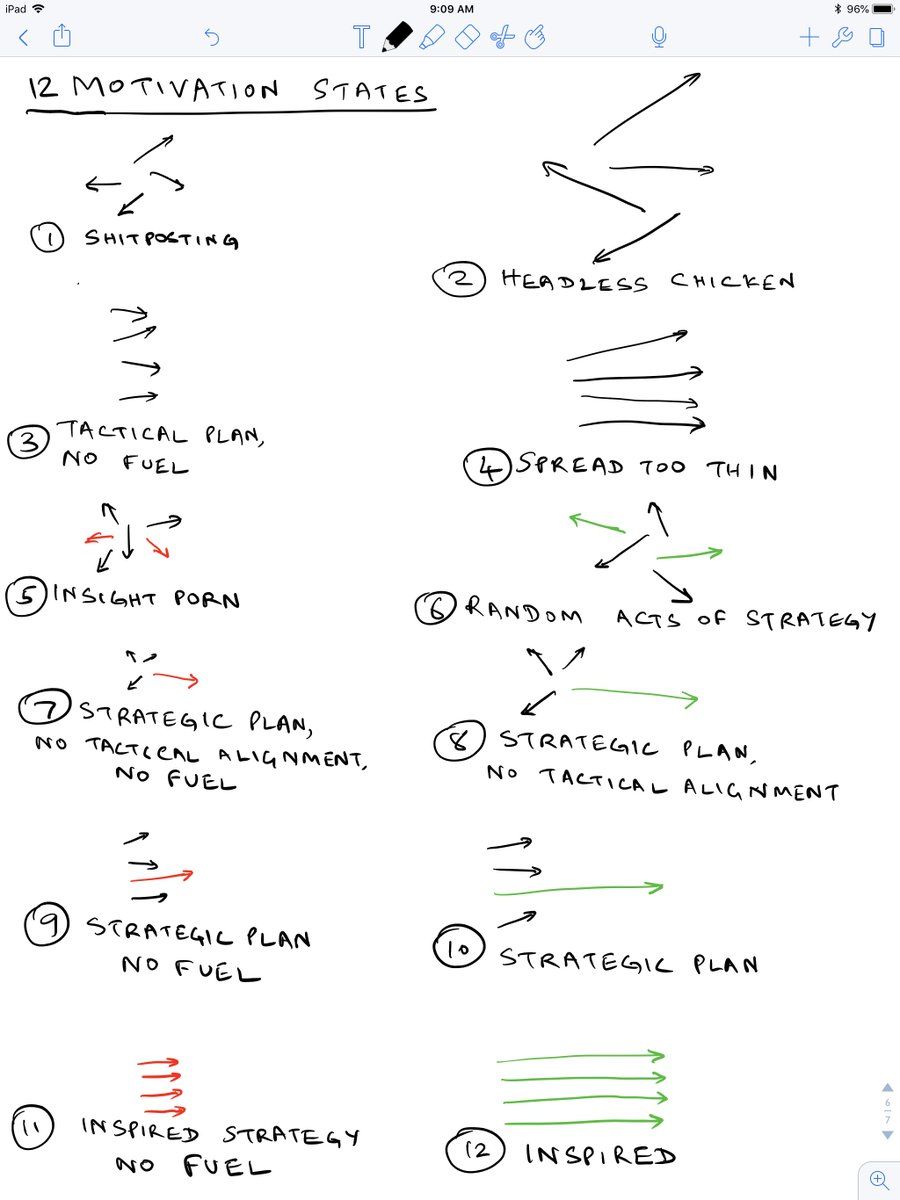 iPad
9:09 AM
96%
T
12 MOTIVATION STATES
① SHITPOSTING
② HEADLESS CHICKEN
③ TACTICAL PLAN,
NO FUEL
④ SPREAD TOO THIN
⑤ INSIGHT PORN
⑥ RANDOM ACTS OF STRATEGY
⑦ STRATEGIC PLAN,
NO TACTICAL ALIGNMENT,
NO FUEL
⑧ STRATEGIC PLAN,
NO TACTICAL ALIGNMENT
⑨ STRATEGIC PLAN
NO FUEL
⑩ STRATEGIC PLAN
⑪ INSPIRED STRATEGY
NO FUEL
⑫ INSPIRED
6
7